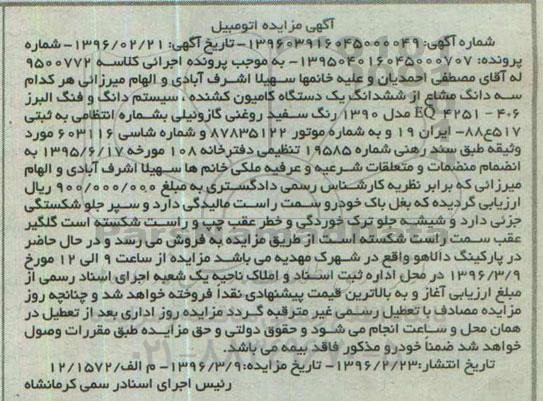 آگهی مزایده اتومبیل
شماره آگهی: ۱۳۹۶۰۳۹۱۶۰۴۵۰۰۰۰۴۹- تاریخ آگهی: ۱۳۹۶/۰۲/۲۱- شماره
پرونده: ۱۳۹۵۰۴۰۱۶۰۴۵۰۰۰۷۰۷- به موجب پرونده اجرائی کلاسه ۹۵۰۰۷۷۲
له آقای مصطفی احمدیان و علیه خانمها سهیلا اشرف آبادی و الهام میرزائی هر کدام
سه دانگ مشاع از ششدانگ یک دستگاه کامیون کشنده ، سیستم دانگ و فنگ البرز
۴۰۶ - EQ ۴۲۵۱ مدل ۱۳۹۰ رنگ سفید روغنی گازوئیلی بشماره انتظامی به ثبتی
۵۱۷ع۸۸- ایران ۱۹ و به شماره موتور ۸۷۸۳۵۱۲۲ و شماره شاسی ۶۰۳۱۱۶ مورد
وثیقه طبق سند رهنی شماره ۱۹۵۸۵ تنظیمی دفترخانه ۱۰۸ مورخه ۱۳۹۵/۶/۱۷ به
انضمام منضمات و متعلقات شرعیه و عرفیه ملکی خانم ها سهیلا اشرفی آبادی و الهام
میرزائی که برابر نظریه کارشناس رسمی دادگستری به مبلغ ۹۰۰/۰۰۰/۰۰۰ ریال
ارزیابی گردیده که بغل باک خودرو سمت راست مالیدگی دارد و سپر جلو شکستگی
جزئی دارد و شیشه جلو ترک خوردگی و خطر عقب چپ و راست شکسته است گلگیر
عقب سمت راست شکسته است از طریق مزایده به فروش می رسد و در حال حاضر
در پارکینگ دالاهو واقع در شهرک مهدیه می باشد مزایده از ساعت ۹ الی ۱۲ مورخ
۱۳۹۶/۳/۹ در محل اداره ثبت اسناد و املاک ناحیه یک شعبه اجرای اسناد رسمی از
مبلغ ارزیابی آغاز و به بالاترین قیمت پیشنهادی نقداً فروخته خواهد شد و چنانچه روز
مزایده مصادف با تعطیل رسمی غیر مترقبه گردد مزایده روز اداری بعد از تعطیل در
همان محل و ساعت انجام می شود و حقوق دولتی و حق مزایده طبق مقررات وصول
خواهد شد ضمناً خودرو مذکور فاقد بیمه می باشد
تاریخ انتشار:۱۳۹۶/۲/۲۳- تاریخ مزایده:۱۳۹۶/۳/۹- م الف/۱۲/۱۵۷۲
رئیس اجرای اسنادر سمی کرمانشاه